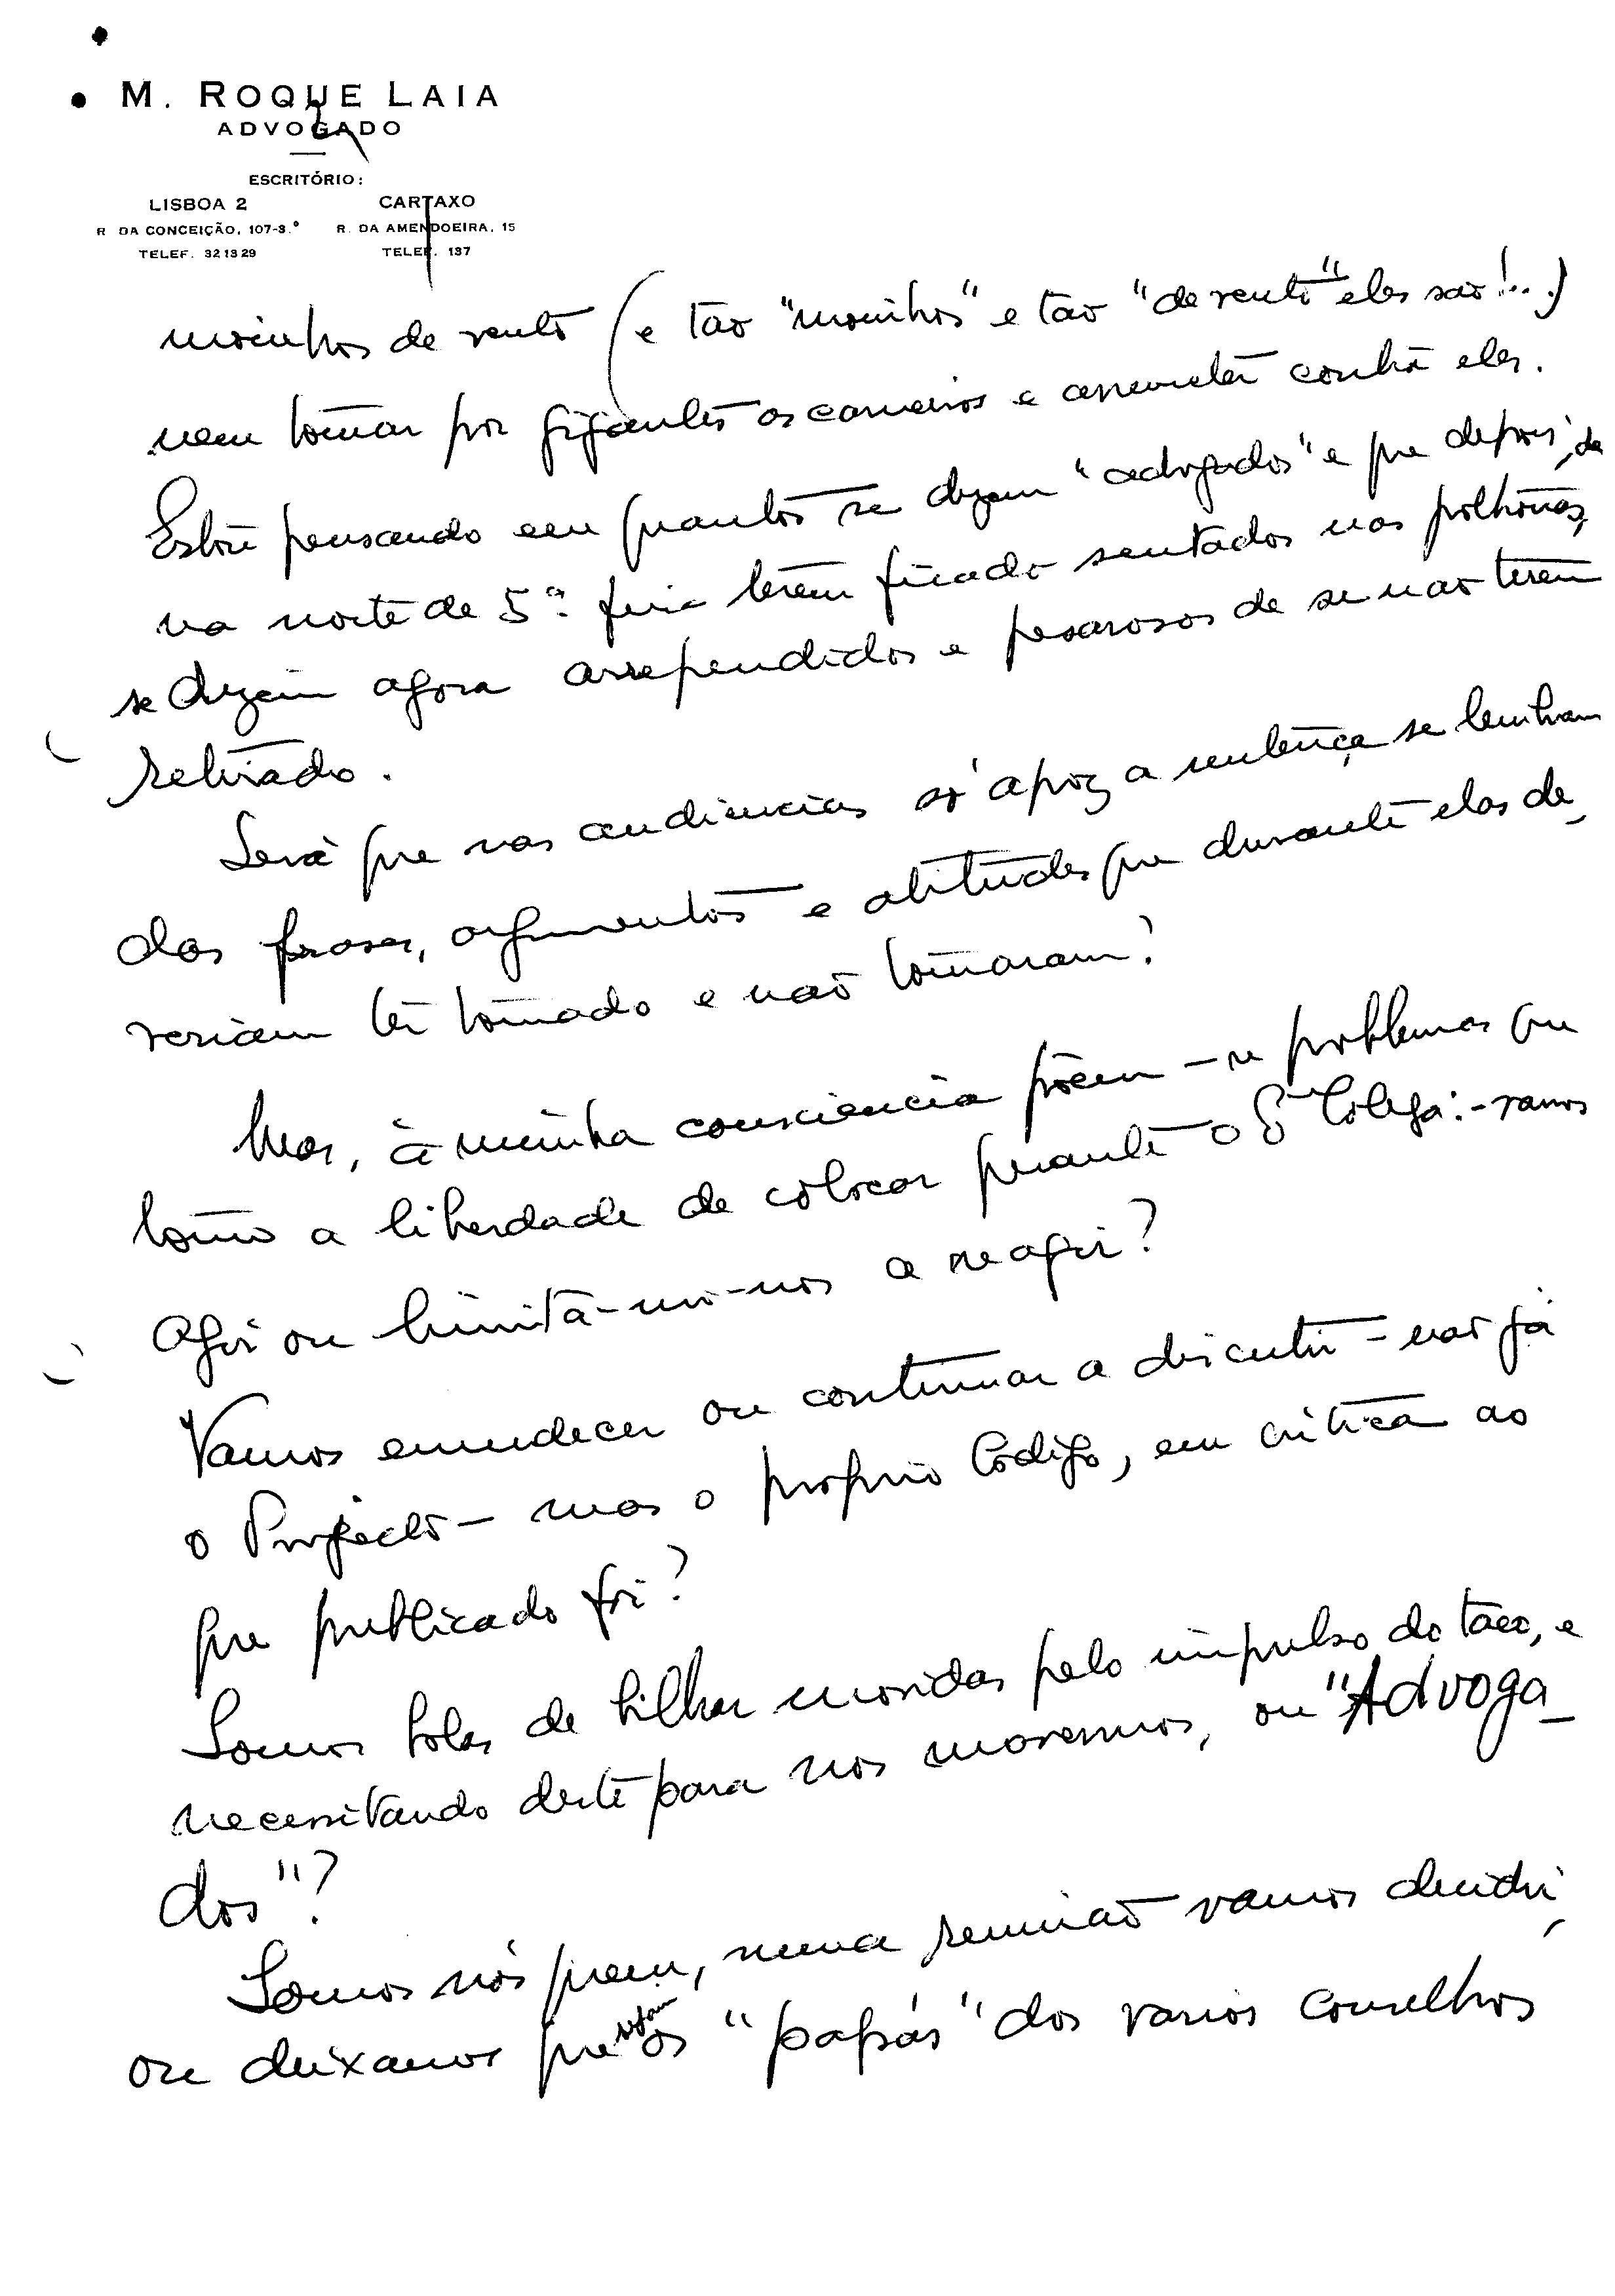 M. ROQUE LAIA
ADVOGADO
ESCRITÓRIO:
LISBOA 2 CARTAXO
R DA CONCEIÇÃO, 107-3.º R. DA AMENDOEIRA, 15
TELEF. 321329 TELEF. 137
moinhos de vento (e tão "moinhos" e tão "de vento" eles são!...)
nem tomar por gigantes os carneiros e arremeter contra eles.
Estou pensando em quantos se dizem "advogados" e que depois, de
na noite de 5ª feira terem ficado sentados nas poltronas,
se dizem agora arrependidos e pesarosos de se não terem
retirado.
Será que nas audiencias só apoz a sentença se lembram
das frases, argumentos e atitudes que durante elas de-
veriam ter tomado e não tomaram?
Mas, à minha consciencia põem-se problemas que
tomo a liberdade de colocar perante o Colega:-vamos
agir ou limitá-mo-nos a reagir?
Vamos emudecer ou continuar a discutir - não já
o Projecto - mas o proprio Codigo, em critica ao
que publicado foi?
Somos bolas de bilhar movidas pelo impulso do taco, e
necessitando deste para nos movermos, ou "Advoga-
dos"?
Somos nós quem, numa reunião vamos decidir,
ou deixamos que sejam os "papás" dos varios conselhos